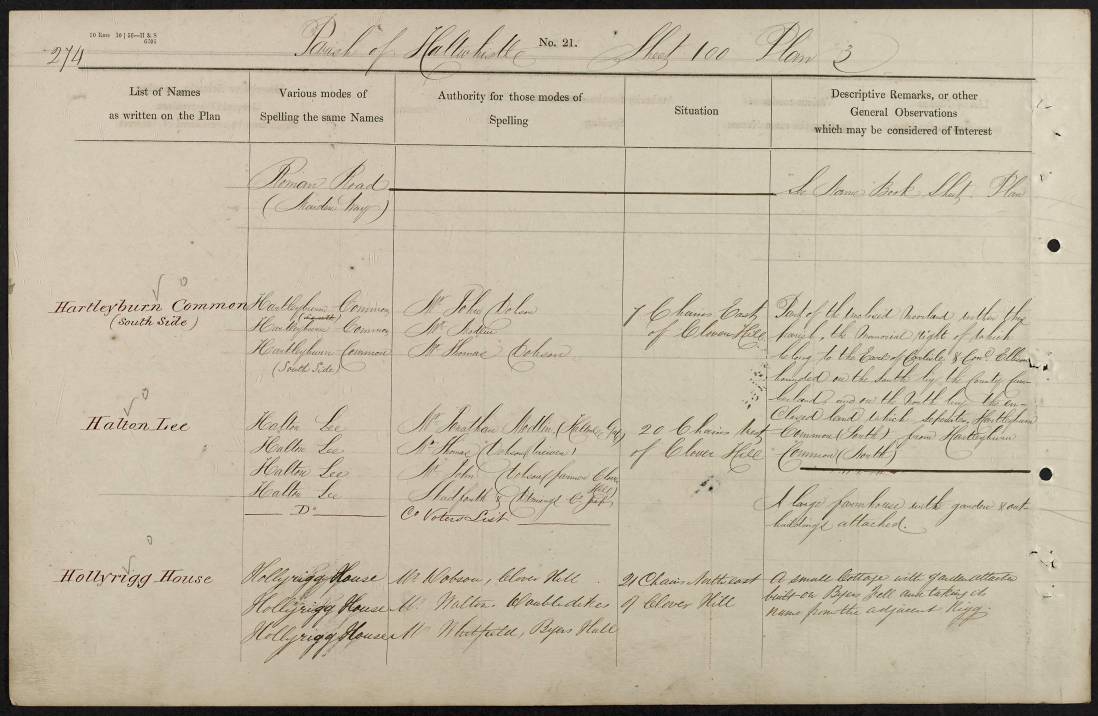 274
Parish of Haltwhistle No. 21. Sheet 100 Plan 3
List of Names
as written on the Plan
Various modes of
Spelling the same Names
Authority for those modes of
Spelling
Situation
Descriptive Remarks, or other
General Observations
which may be considered of Interest
Roman Road
(Maiden Way)
See Name Book Sheet Plan
Hartleyburn Common
(South Side)
Hartleyburn Common
(South)
Hartleyburn Common
Hartleyburn Common
(South Side)
Mr John Dobson
Mr
Mr Thomas Dobson
7 Chains East
of Clover Hill
Part of the enclosed moorland within this
parish, the Manorial right of which
belong to the Earl of Carlisle &
bounded on the South by the County Cum-
berland and on the North by the en-
closed land which Hartleyburn
Common (South) from Hartleyburn
Common (North)
Halton Lee
Halton Lee
Halton Lee
Halton Lee
Halton Lee
Do
Mr Jonathan
Mr Thomas Dobson
Mr John Dobson farmer Clover
Hill
Co Voters List
20 Chains West
of Clover Hill
A large farmhouse with garden & out-
buildings attached.
Hollyrigg House
Hollyrigg House
Hollyrigg House
Hollyrigg House
Mr Dobson, Clover Hill
Mr Walton Doubledikes
Mr Whitfield, Byers Hall
21 Chains North east
of Clover Hill
A small Cottage with garden attached
built on Byers Fell and taking its
name from the adjacent Rigg.